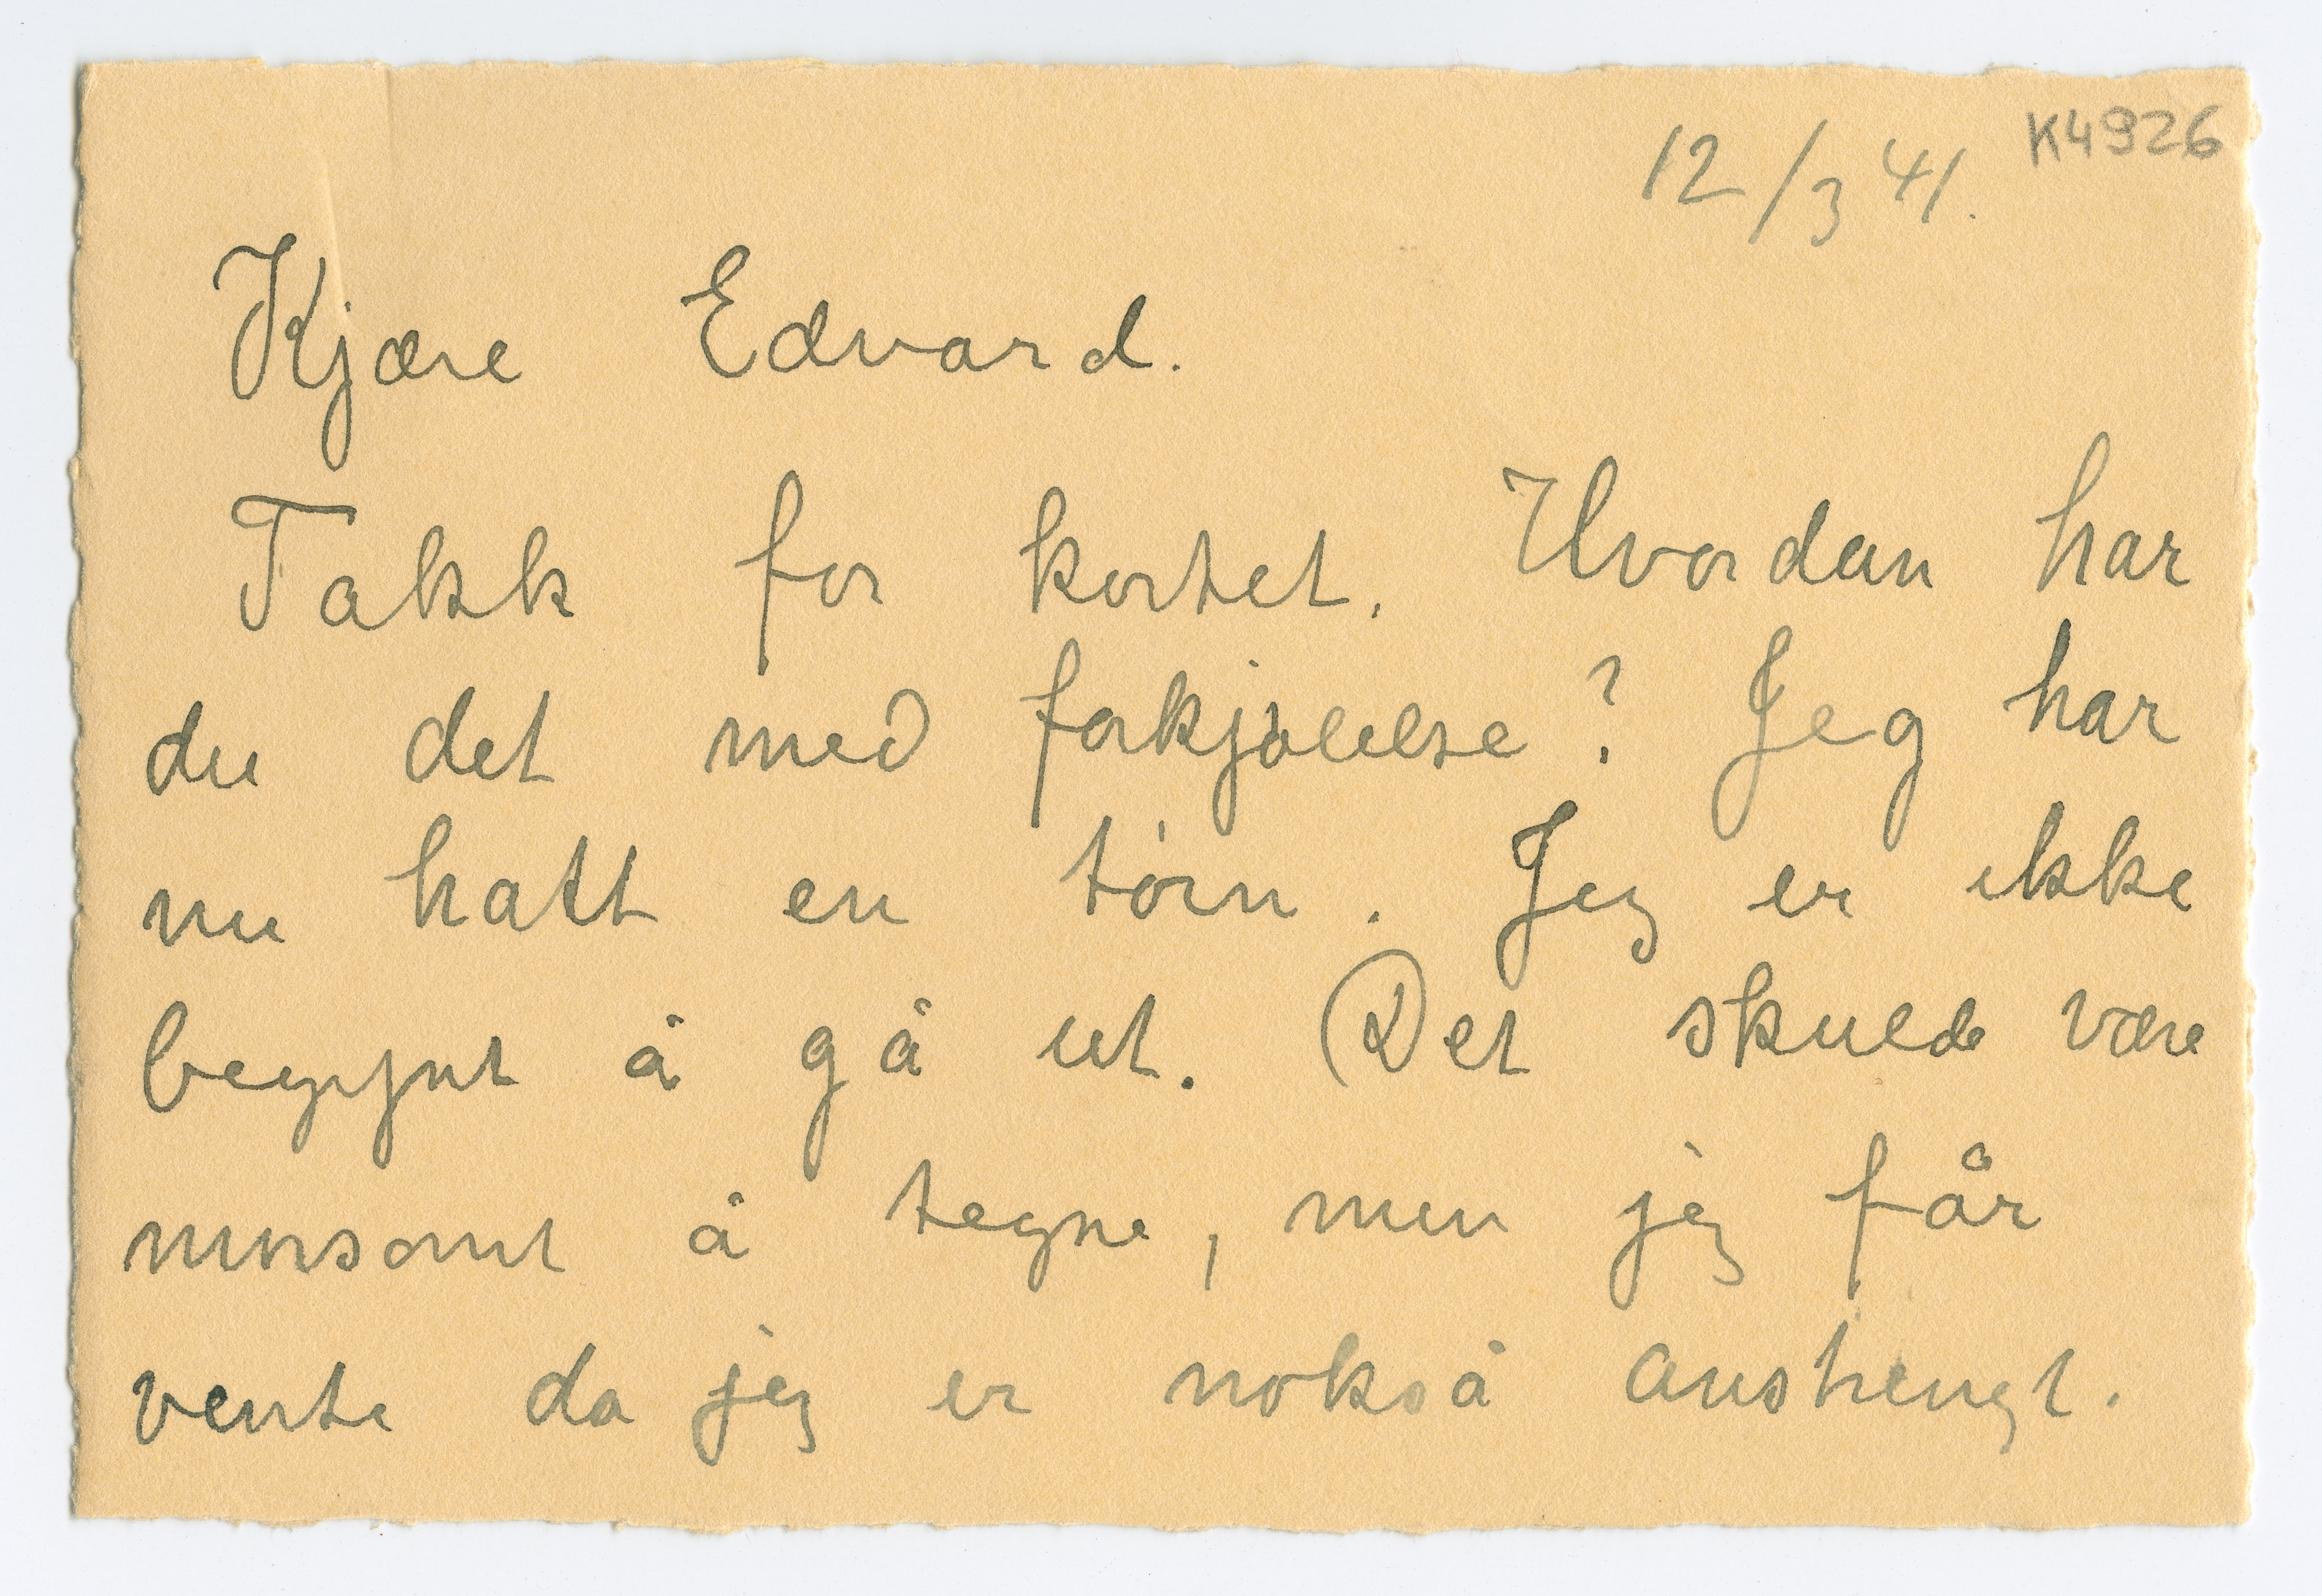 K4926
12/3 41.
Kjære Edvard.
Takk for kortet. Hvordan har
du det med forkjølelse? Jeg har
nu hatt en törn. Jeg er ikke
begynt å gå ut. Det skulde være
morsomt å tegne, men jeg får
vente da jeg er nokså anstrengt.